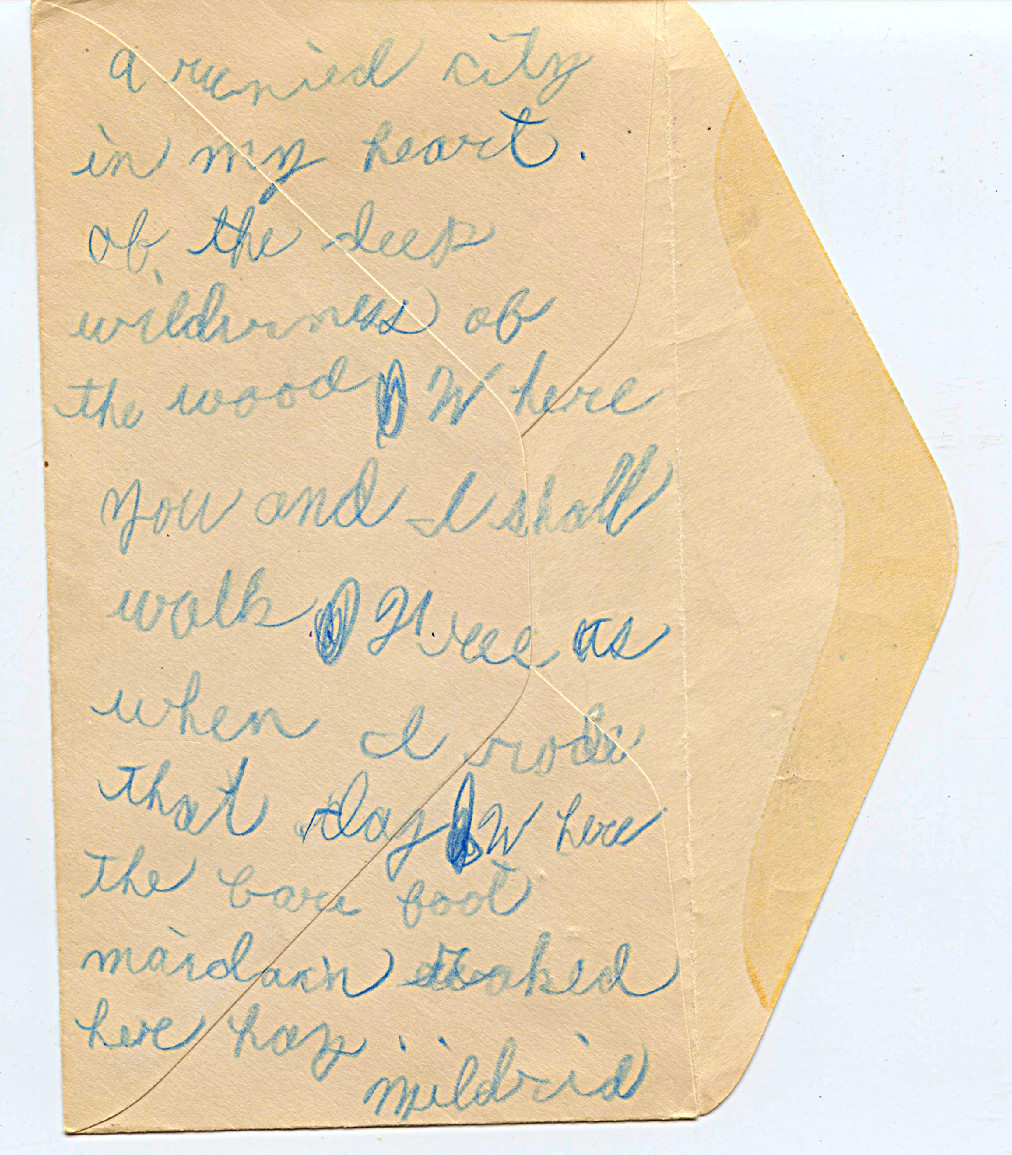 a runied city
in my heart.
of the deep
wilderness of
the wood Where
you and I shall
walk Free as
when I rode
that day Where
the bare foot
maidan'n raked
here hay..
Mildrid